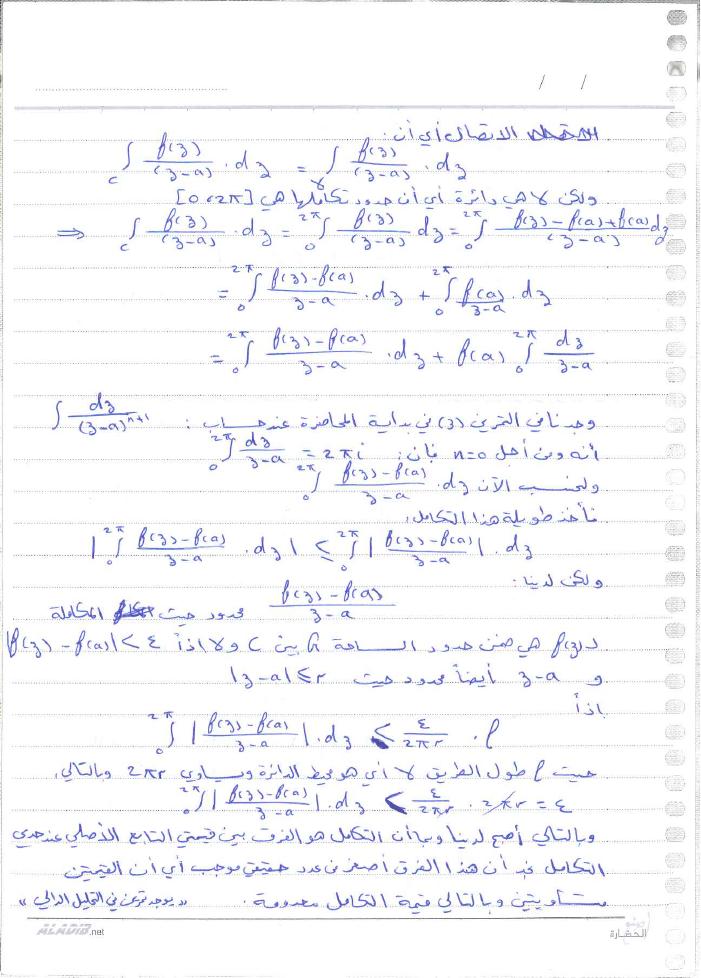 / /
الاتصال أي أن:
∫_C f(z)/(z-a) . dz = ∫_γ f(z)/(z-a) . dz
ولكن γ هي دائرة أي أن حدود تكاملها هي [0, 2π]
⇒ ∫_C f(z)/(z-a) . dz = ∫_0^{2π} f(z)/(z-a) dz = ∫_0^{2π} f(z)-f(a)+f(a)/(z-a) dz
= ∫_0^{2π} f(z)-f(a)/z-a . dz + ∫_0^{2π} f(a)/z-a . dz
= ∫_0^{2π} f(z)-f(a)/z-a . dz + f(a) ∫_0^{2π} dz/z-a
وجدنا في التمرين (3) في بداية المحاضرة عند حساب : ∫ dz/(z-a)^{n+1}
أنه ومن أجل n=0 فإن: ∫_0^{2π} dz/z-a = 2πi
ولنحسب الآن ∫_0^{2π} f(z)-f(a)/z-a . dz
نأخذ طويلة هذا التكامل:
|∫_0^{2π} f(z)-f(a)/z-a . dz| ≤ ∫_0^{2π} |f(z)-f(a)/z-a| . dz
ولكن لدينا:
f(z)-f(a)/z-a محدود حيث المكاملة
لـ f(z) هي ضمن حدود الساحة G بين C و γ إذاً |f(z)-f(a)| < ε
و z-a أيضاً محدود حيث |z-a| ≤ r
إذاً
∫_0^{2π} |f(z)-f(a)/z-a| . dz < ε/2πr . ℓ
حيث ℓ طول الطريق γ أي هو محيط الدائرة ويساوي 2πr وبالتالي:
∫_0^{2π} |f(z)-f(a)/z-a| . dz < ε/2πr . 2πr = ε
وبالتالي أصبح لدينا وبما أن التكامل هو الفرق بين قيمتي التابع الأصلي عند حدي
التكامل نجد أن هذا الفرق أصغر من عدد حقيقي موجب أي أن القيمتين
متساويتين وبالتالي قيمة التكامل معدومة. «يوجد تمرين في التحليل الدالي»
ALADIB.net
الحضارة